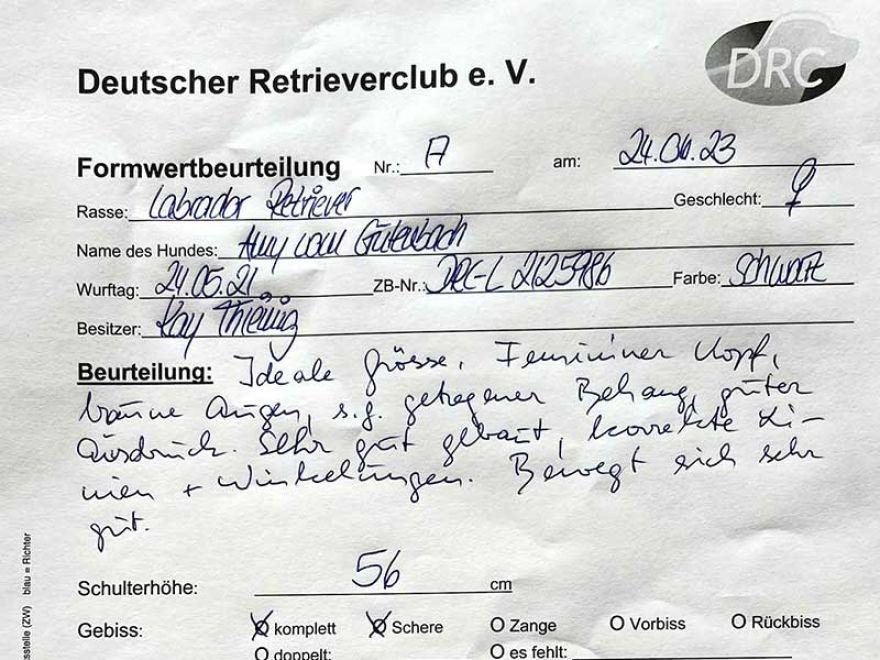 Deutscher Retrieverclub e. V.
DRC
Formwertbeurteilung Nr.: A am: 24.06.23
Rasse: Labrador Retriever Geschlecht: ♀
Name des Hundes: Amy vom Gutenbach
Wurftag: 24.05.21 ZB-Nr.: DRC-L 2125986 Farbe: schwarz
Besitzer: Kay
Beurteilung: Ideale Grösse, Femininer Kopf,
braune Augen, s.g. getragener Behang, guter
Ausdruck. Sehr gut gebaut, korrekte Li-
nien + Winkelungen. Bewegt sich sehr
gut.
Schulterhöhe: 56 cm
Gebiss: komplett Schere Zange Vorbiss Rückbiss
doppelt: es fehlt:
sstelle (ZW) blau = Richter